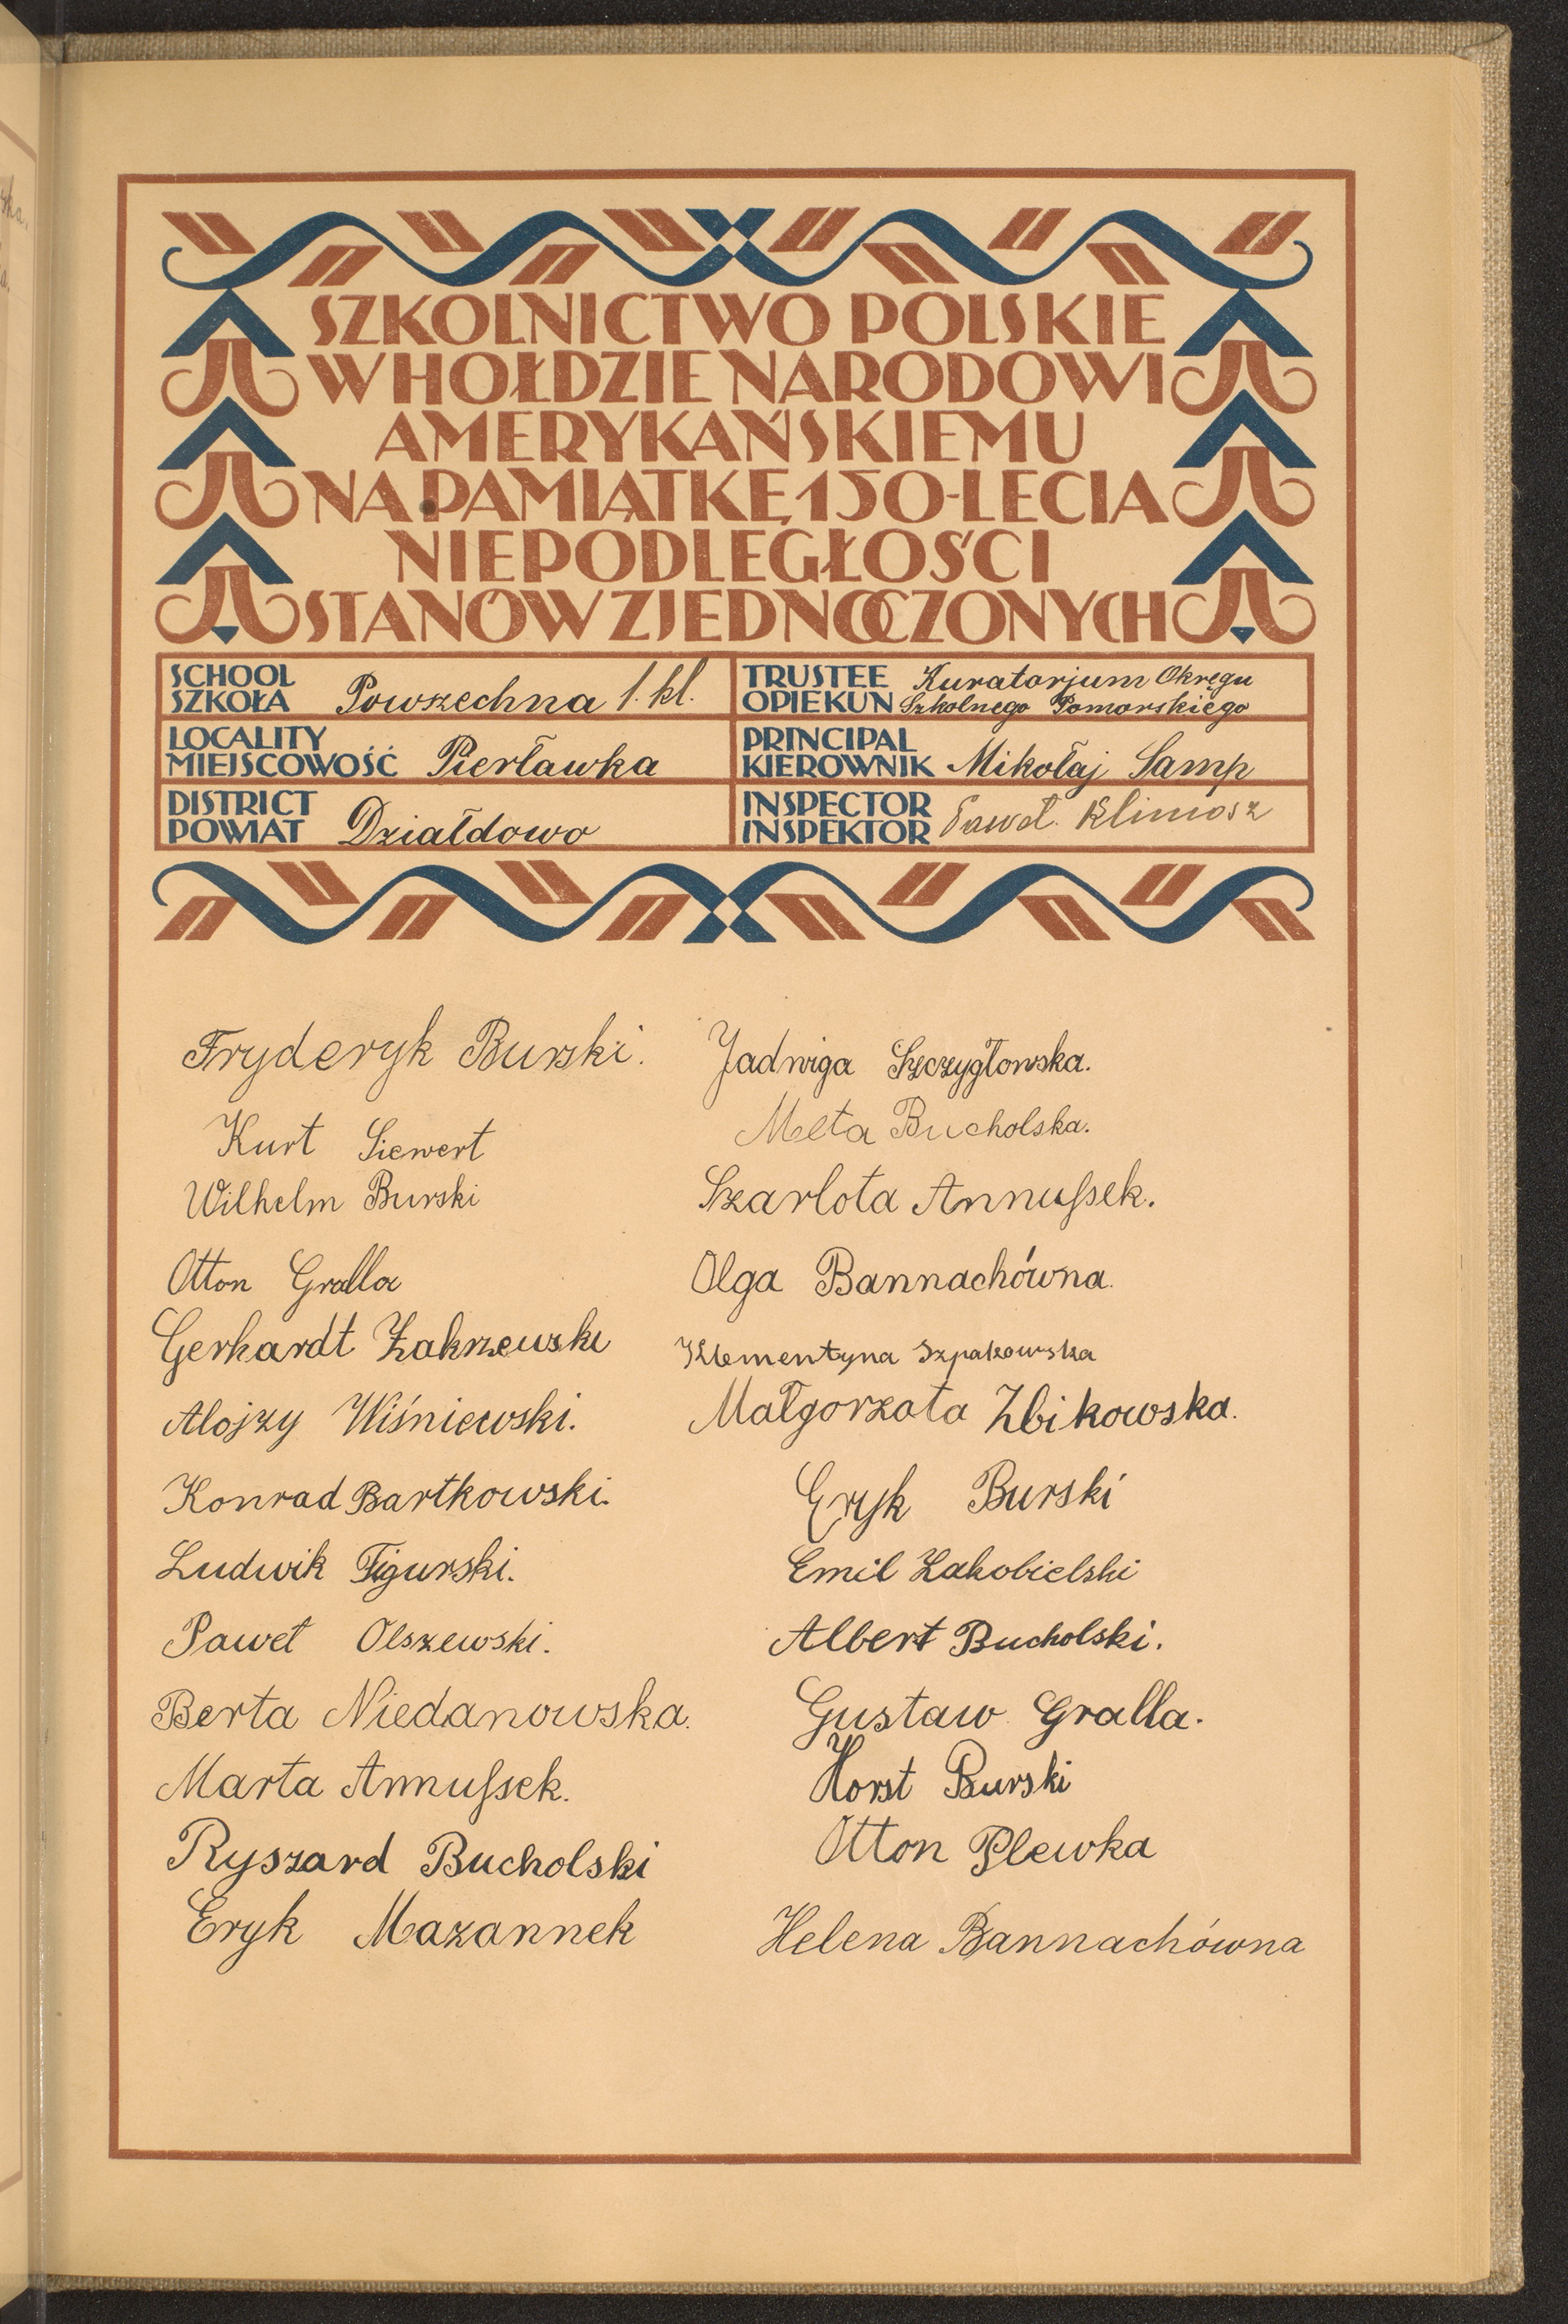 SZKOLNICTWO POLSKIE
W HOŁDZIE NARODOWI
AMERYKAŃSKIEMU
NA PAMIĄTKĘ 150-LECIA
NIEPODLEGŁOŚCI
STANÓW ZJEDNOCZONYCH
SCHOOL
SZKOŁA Powszechna 1. kl.
TRUSTEE Kuratorjum Okręgu
OPIEKUN Szkolnego Pomorskiego
LOCALITY
MIEJSCOWOŚĆ Pierławka
PRINCIPAL
KIEROWNIK Mikołaj Samp
DISTRICT
POWIAT Działdowo
INSPECTOR
INSPEKTOR Paweł Klimosz
Fryderyk Burski.
Kurt Siewert
Wilhelm Burski
Otton Gralla
Gerhardt Zakrzewski
Alojzy Wiśniewski.
Konrad Bartkowski.
Ludwik Figurski.
Paweł Olszewski.
Berta Niedanowska.
Marta Annuſsek.
Ryszard Bucholski
Eryk Mazannek
Jadwiga Szczygłowska.
Meta Bucholska.
Szarlota Annuſsek.
Olga Bannachówna.
Klementyna Szpakowska
Małgorzata Zbikowska.
Eryk Burski
Emil Zakobielski
Albert Bucholski.
Gustaw Gralla.
Horst Burski
Otton Plewka
Helena Bannachówna